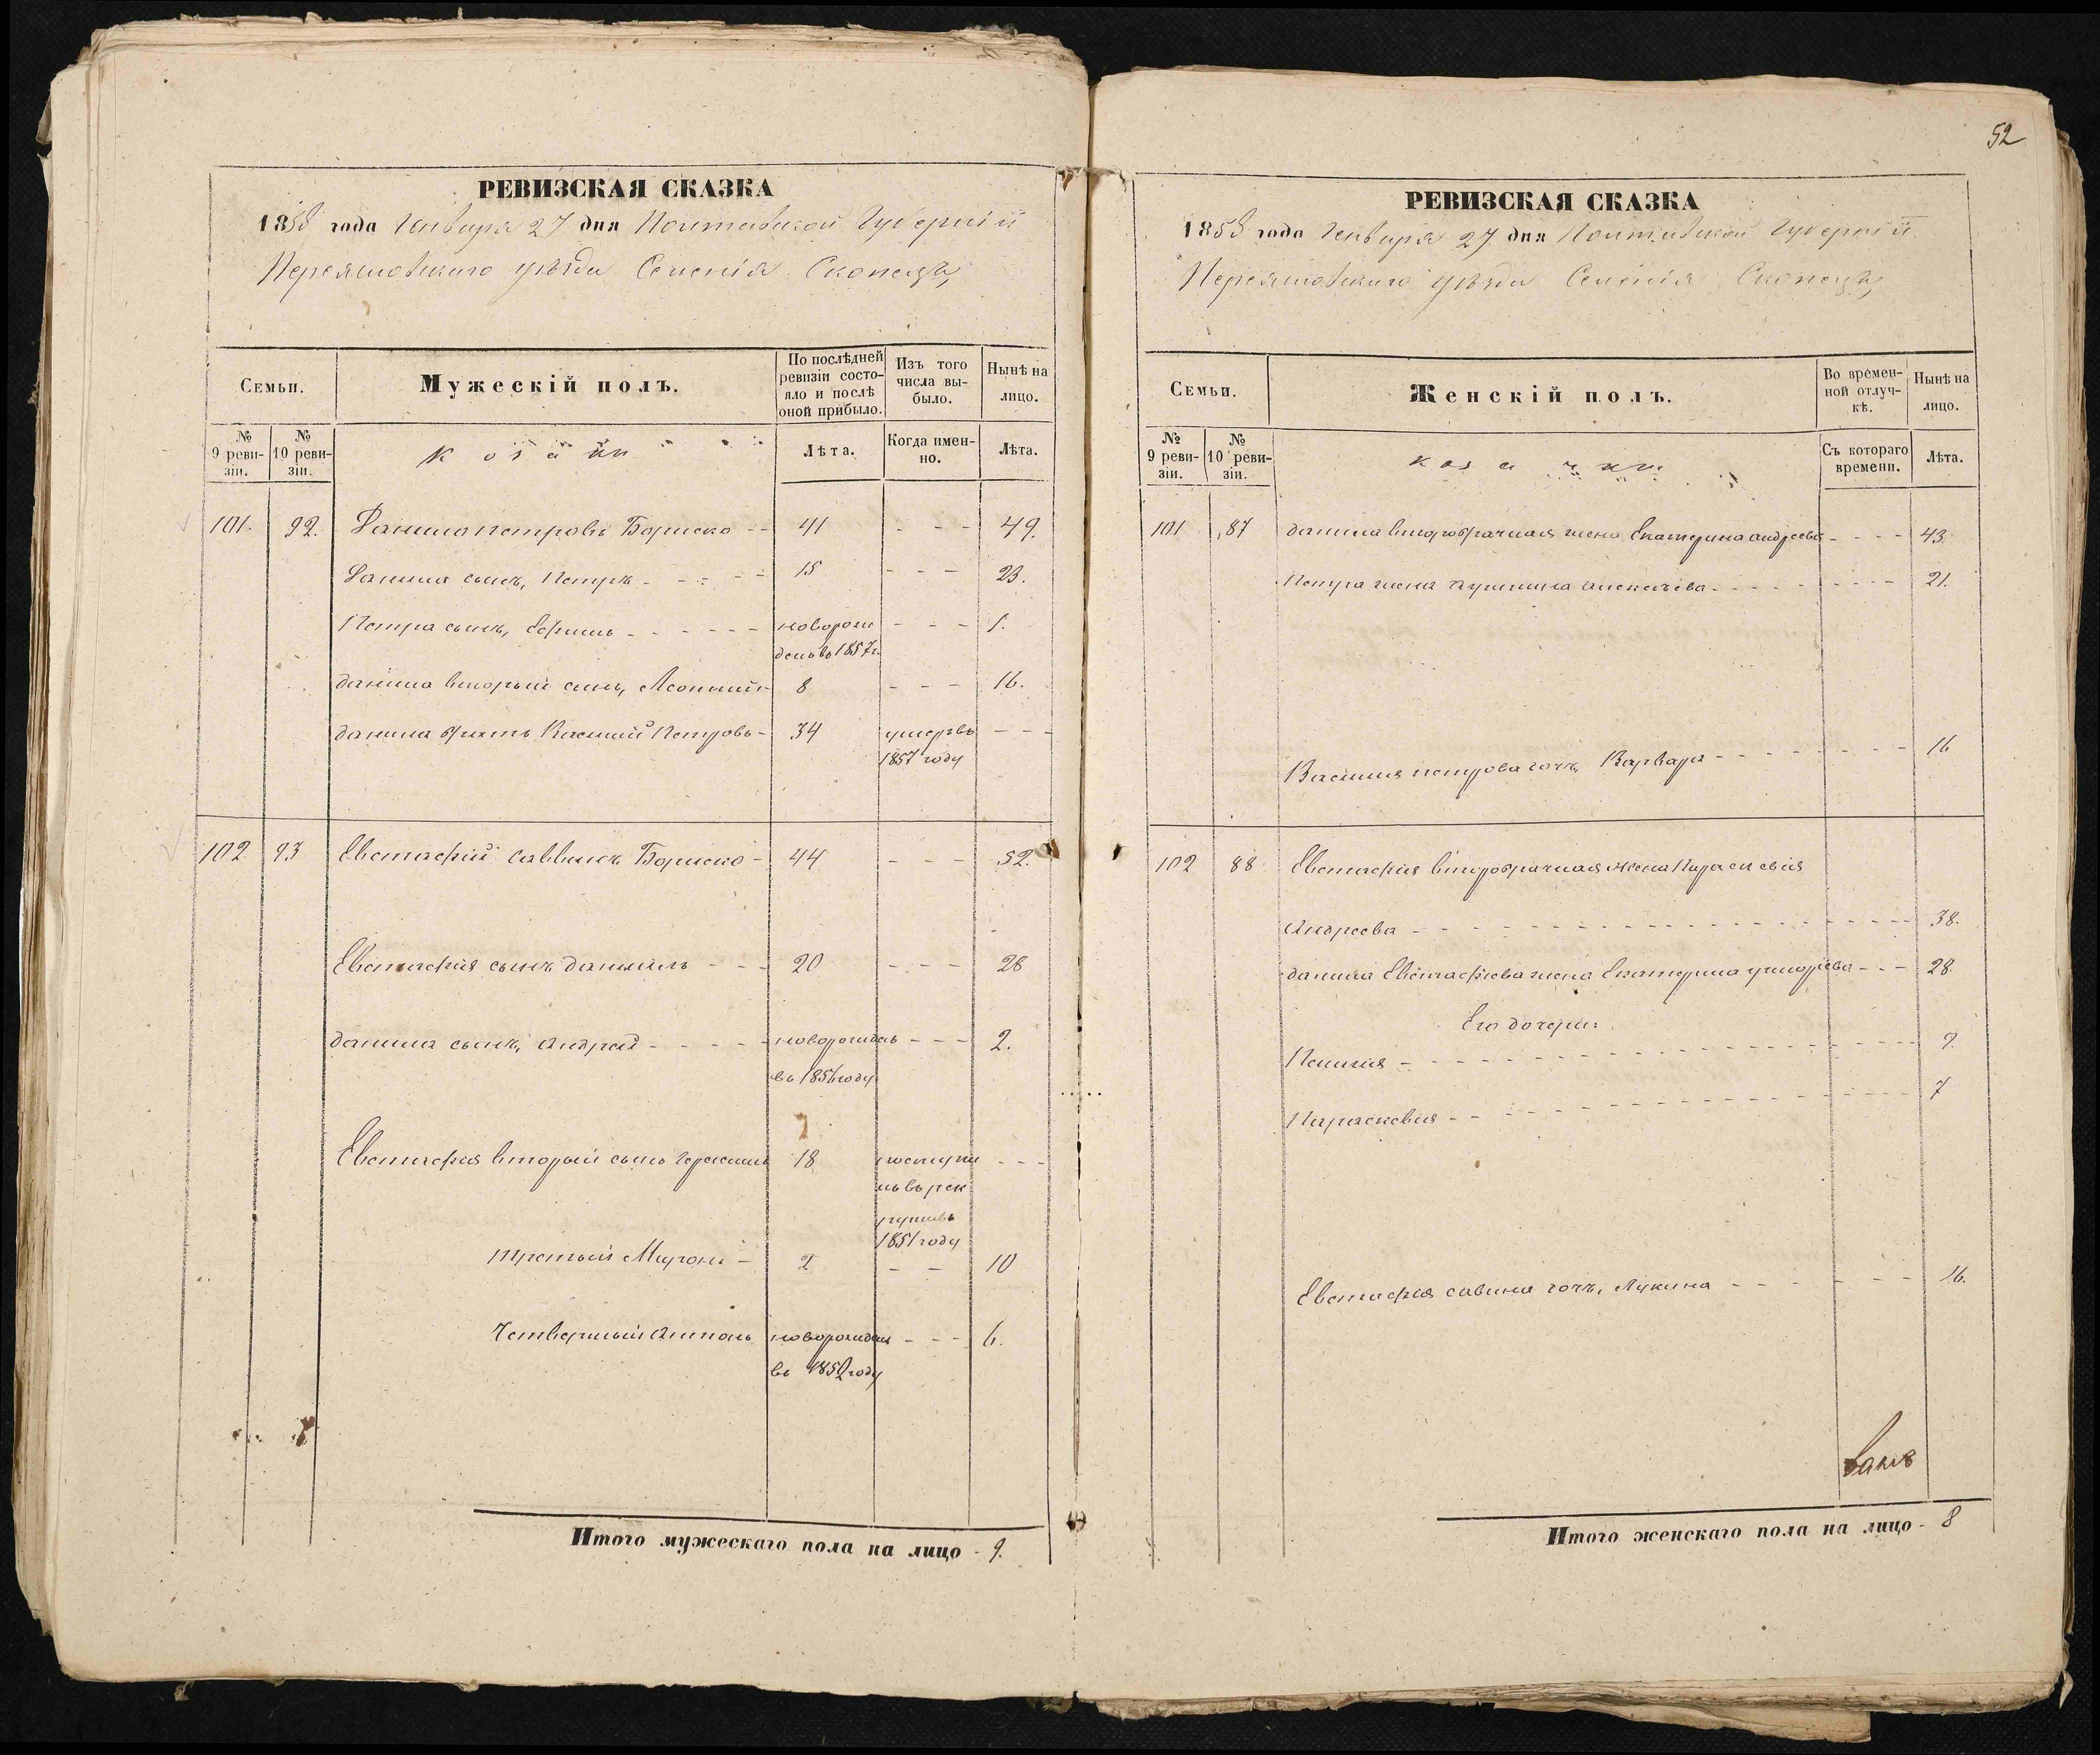 52
РЕВИЗСКАЯ СКАЗКА
1858 года Генваря 27 дня Полтавской Губерніи
Переяславскаго уѣзда Селенія Скопецъ,
Семьи.
Мужескій полъ.
По послѣдней ревизіи состо-
яло и послѣ оной прибыло.
Изъ того числа вы-
было.
Нынѣ на лицо.
№ 9 реви-
зіи.
№ 10 реви-
зіи.
козаки
Лѣта.
Когда имен-
но.
Лѣта.
101. 92. Данило Петровъ Бориско - - 41 - - - 49.
Данила сынъ, Петръ - - - - - 15 - - - 23.
Петра сынъ, Ефимъ - - - - - - новорож - - - 1.
денъ въ 1857 г.
данила вторый сынъ, Леонтий - 8 - - - 16.
данила братъ Василий Петровъ - 34 умеръ въ - - -
1857 году
102 93 Евстафий Саввинъ Бориско - 44 - - - 52.
Евстафия сынъ даниилъ - - - 20 - - - 28
данила сынъ, Андрей - - - - - новорожденъ - - - 2.
въ 1856 году
Евстафия вторый сынъ Герасимъ 18 поступи - - -
лъ въ рек
руты въ
1851 году
третый Миронъ - 2 - - 10
Четвертый Антонъ новорожден - - - 6.
въ 1852 году
Итого мужескаго пола на лицо - 9.
РЕВИЗСКАЯ СКАЗКА
1858 года Генваря 27 дня Полтавской Губерніи
Переяславскаго уѣзда Селенія Скопецъ,
Семьи.
Женскій полъ.
Во времен-
ной отлуч-
кѣ.
Нынѣ на лицо.
№ 9 реви-
зіи.
№ 10 реви-
зіи.
козачки
Съ котораго времени.
Лѣта.
101 87 данила второбрачная жена Екатерина андреева - - - - 43.
Петра жена - - - - - - - - - 21.
Василия петрова дочь, Варвара - - - - - - - - - 16
102 88 Евстафия второбрачная жена Параскевия
Андреева - - - - - - - - - - - - - - 38.
данила Евстафиева жена Екатерина григорьева - - - 28.
Его дочери:
Пелагия - - - - - - - - - - - - - - 9.
Параскевия - - - - - - - - - - - - - - 7
Евстафия савина дочь, Акилина - - - - - - - 16.
Итого женскаго пола на лицо - 8